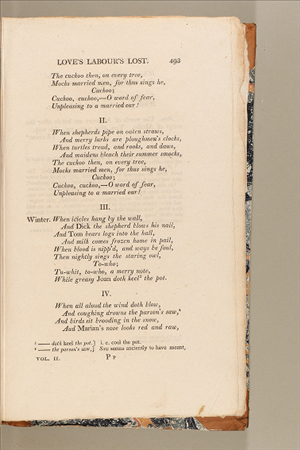 LOVE'S LABOUR'S LOST. 493
The cuckoo then, on every tree,
Mocks married men, for thus sings he,
Cuckoo;
Cuckoo, cuckoo,—O word of fear,
Unpleasing to a married ear!
II.
When shepherds pipe on oaten straws,
And merry larks are ploughmen's clocks,
When turtles tread, and rooks, and daws,
And maidens bleach their summer smocks,
The cuckoo then, on every tree,
Mocks married men, for thus sings he,
Cuckoo;
Cuckoo, cuckoo,—O word of fear,
Unpleasing to a married ear!
III.
Winter. When icicles hang by the wall,
And Dick the shepherd blows his nail,
And Tom bears logs into the hall,
And milk comes frozen home in pail,
When blood is nipp'd, and ways be foul,
Then nightly sings the staring owl,
To-who;
Tu-whit, to-who, a merry note,
While greasy Joan doth keel³ the pot.
IV.
When all aloud the wind doth blow,
And coughing drowns the parson's saw,⁴
And birds sit brooding in the snow,
And Marian's nose looks red and raw,
³ —— doth keel the pot.} i. e. cool the pot.
⁴ —— the parson's saw,} Saw seems anciently to have meant,
VOL. II. P p